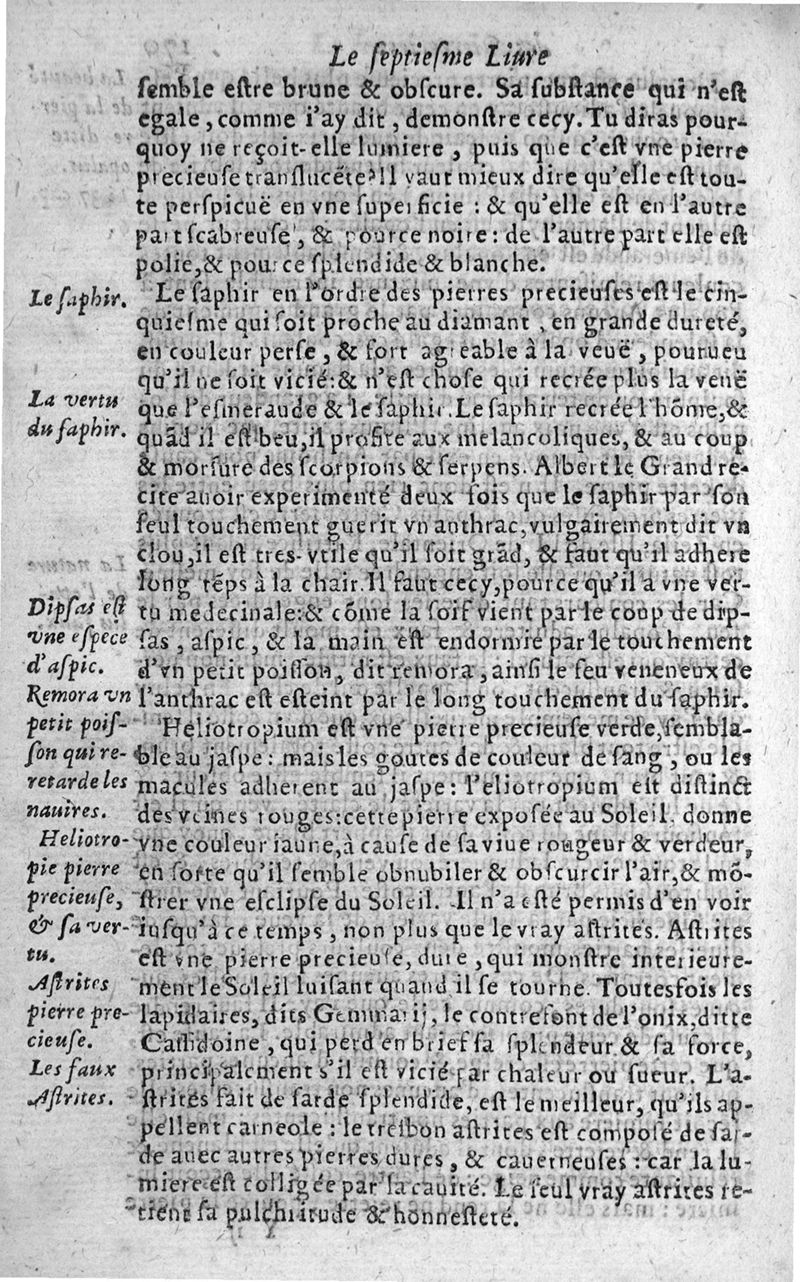 Le ſeptieſme Liure
ſemble eſtre brune & obſcure. Sa ſubſtance qui n'eſt
egale, comme i'ay dit, demonſtre cecy. Tu diras pour-
quoy ne reçoit-elle lumiere, puis que c'eſt vne pierre
precieuſe tranſlucẽte? Il vaut mieux dire qu'elle eſt tou-
te perſpicuë en vne ſuperficie : & qu'elle eſt en l'autre
part ſcabreuſe, & pource noire: de l'autre part elle eſt
polie, & pource ſplendide & blanche.
Le ſaphir.
Le ſaphir en l'ordre des pierres precieuſes eſt le cin-
quieſme qui ſoit proche au diamant, en grande dureté,
en couleur perſe, & fort agreable à la veuë, pourueu
qu'il ne ſoit vicié: & n'eſt choſe qui recrée plus la veuë
La vertu
du ſaphir.
que l'eſmeraude & le ſaphir. Le ſaphir recrée l'hõme, &
quãd il eſt beu, il profite aux melancoliques, & au coup
& morſure des ſcorpions & ſerpens. Albert le Grand re-
cite auoir experimenté deux fois que le ſaphir par ſon
ſeul touchement guerit vn anthrac, vulgairement dit vn
clou, il eſt tres-vtile qu'il ſoit grãd, & faut qu'il adhere
long tẽps à la chair. Il faut cecy, pource qu'il a vne ver-
Dipſas eſt
vne eſpece
d'aſpic.
tu medecinale: & cõme la ſoif vient par le coup de dip-
ſas, aſpic, & la main eſt endormie par le touchement
d'vn petit poiſſon, dit remora, ainſi le feu veneneux de
Remora vn
petit poiſ-
ſon qui re-
retarde les
nauires.
l'anthrac eſt eſteint par le long touchement du ſaphir.
Heliotropium eſt vne pierre precieuſe verde, ſembla-
ble au jaſpe : mais les goutes de couleur de ſang, ou les
macules adherent au jaſpe: l'eliotropium eſt diſtinct
des veines rouges: cette pierre expoſée au Soleil, donne
Heliotro-
pie pierre
precieuſe,
& ſa ver-
tu.
vne couleur iaune, à cauſe de ſa viue rougeur & verdeur,
en ſorte qu'il ſemble obnubiler & obſcurcir l'air, & mõ-
ſtrer vne eſclipſe du Soleil. Il n'a eſté permis d'en voir
iuſqu'à ce temps, non plus que le vray aſtrites. Aſtrites
eſt vne pierre precieuſe, dure, qui monſtre interieure-
Aſtrites
pierre pre-
cieuſe.
ment le Soleil luiſant quand il ſe tourne. Toutesfois les
lapidaires, dits Gemmarij, le contrefont de l'onix, ditte
Caſſidoine, qui perd en brief ſa ſplendeur & ſa force,
Les faux
Aſtrites.
principalement s'il eſt vicié par chaleur ou ſueur. L'a-
ſtrites fait de ſarde ſplendide, eſt le meilleur, qu'ils ap-
pellent carneole : le treſbon aſtrites eſt compoſé de ſar-
de auec autres pierres dures, & cauerneuſes : car la lu-
miere eſt colligée par la cauité. Le ſeul vray aſtrites re-
tient ſa pulchritude & honneſteté.